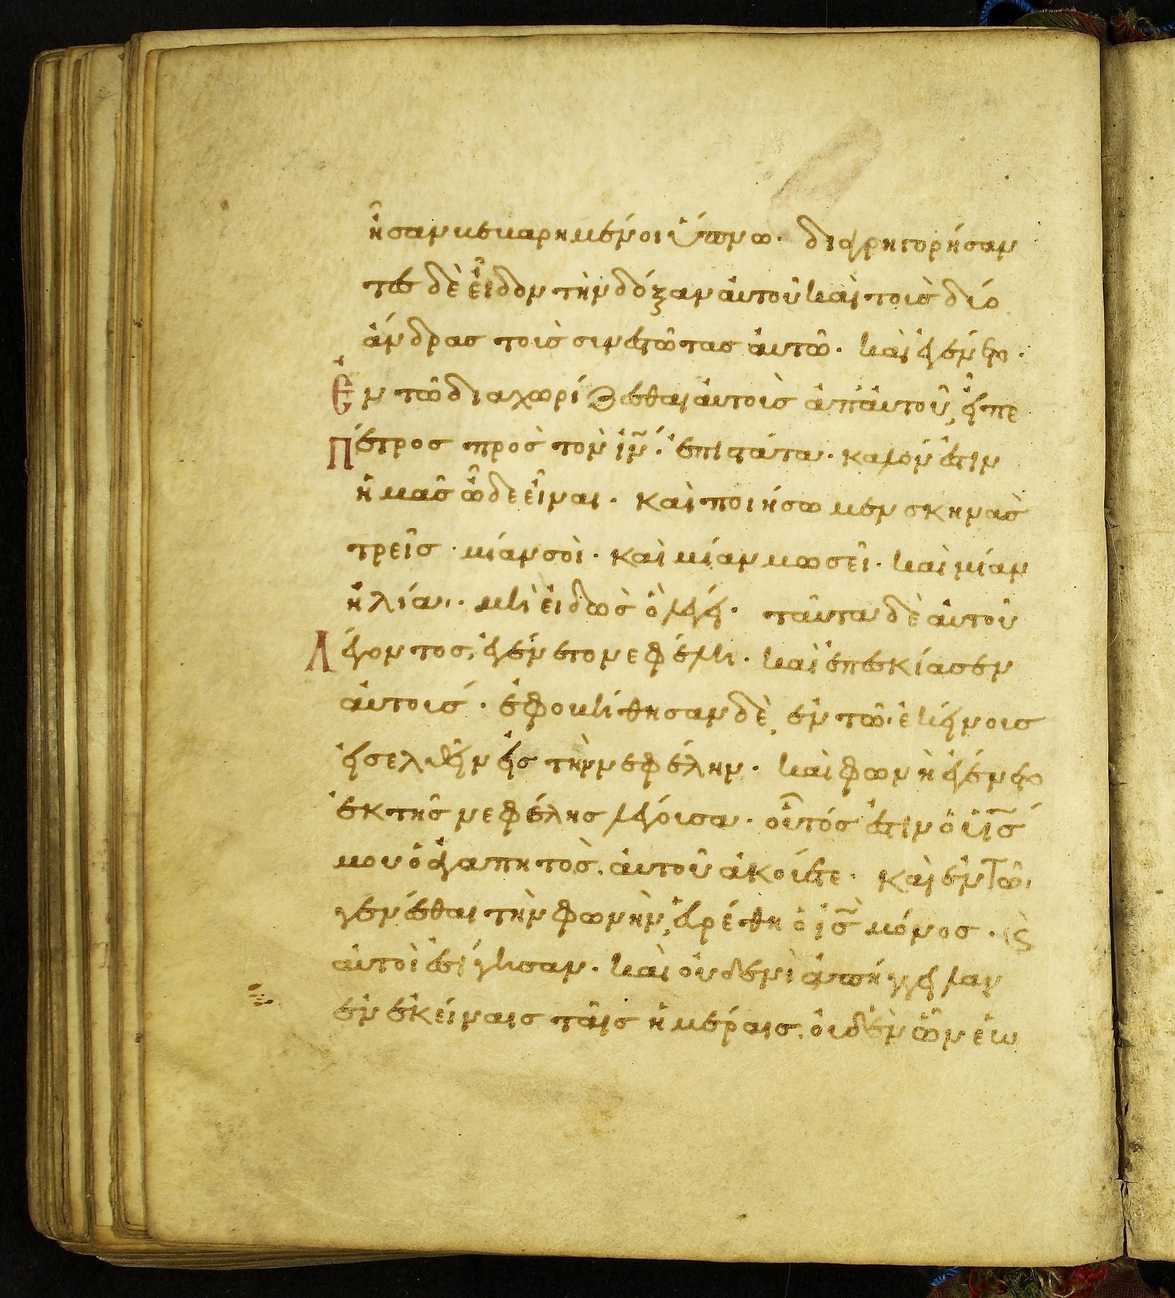 ἦσαν κεκαρημένοι ὕπνω· διαγρηγορήσαν
τες δὲ εἶδον τὴν δόξαν αὐτοῦ καὶ τοὶς δύο
ἄνδρας τοὶς συνεστῶτας αὐτῶ· καὶ ἐγένετο·
Ἐν τῶ διαχωρίζεσθαι αὐτοὶς ἀπ' αὐτοῦ, εἶπε
Πέτρος πρὸς τὸν ἰν̅· ἐπιστάτα· καλόν ἐστιν
ἡμᾶς ὧδε εἶναι· καὶ ποιήσωμεν σκηνὰς
τρεῖς· μίαν σοὶ· καὶ μίαν μωσεῖ· καὶ μίαν
ἠλία· μὴ εἰδὼς ὃ λέγει· ταῦτα δὲ αὐτοῦ
Λέγοντος, ἐγένετο νεφέλη· καὶ ἐπεσκίασεν
αὐτοις· ἐφοβήθησαν δὲ, ἐν τῶ ἐκείνοις
εἰσελθεῖν εἰς τὴν νεφέλην· καὶ φωνὴ ἐγένετο
ἐκ τῆς νεφέλης λέγουσα· οὗτός ἐστιν ὁ υἱς̅
μου ὁ ἀγαπητὸς. αὐτοῦ ἀκούετε· καὶ ἐν τῶ
γενέσθαι τὴν φωνὴν, εὑρέθη ὁ ις̅ μόνος· ϗ
αὐτοὶ ἐσίγησαν· καὶ οὐδενὶ ἀπήγγειλαν
ἐν ἐκείναις ταῖς ἡμέραις, οὐδὲν ὧν ἑω